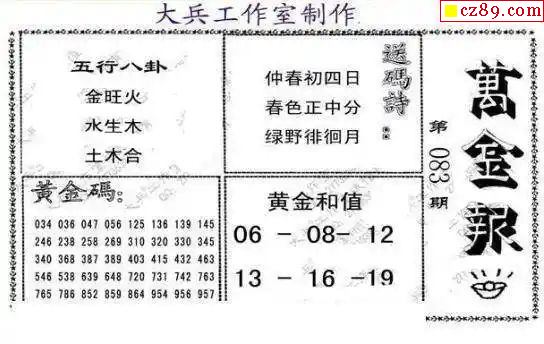 大兵工作室制作
cz89.com
五行八卦
金旺火
水生木
土木合
送碼詩:
仲春初四日
春色正中分
绿野徘徊月
萬金報
第083期
黃金碼:
034 036 047 056 125 136 139 145
246 238 258 269 310 320 330 345
340 368 387 389 403 415 432 463
546 538 639 648 720 731 742 763
765 786 852 859 864 954 956 957
黄金和值
06 - 08- 12
13 - 16 -19